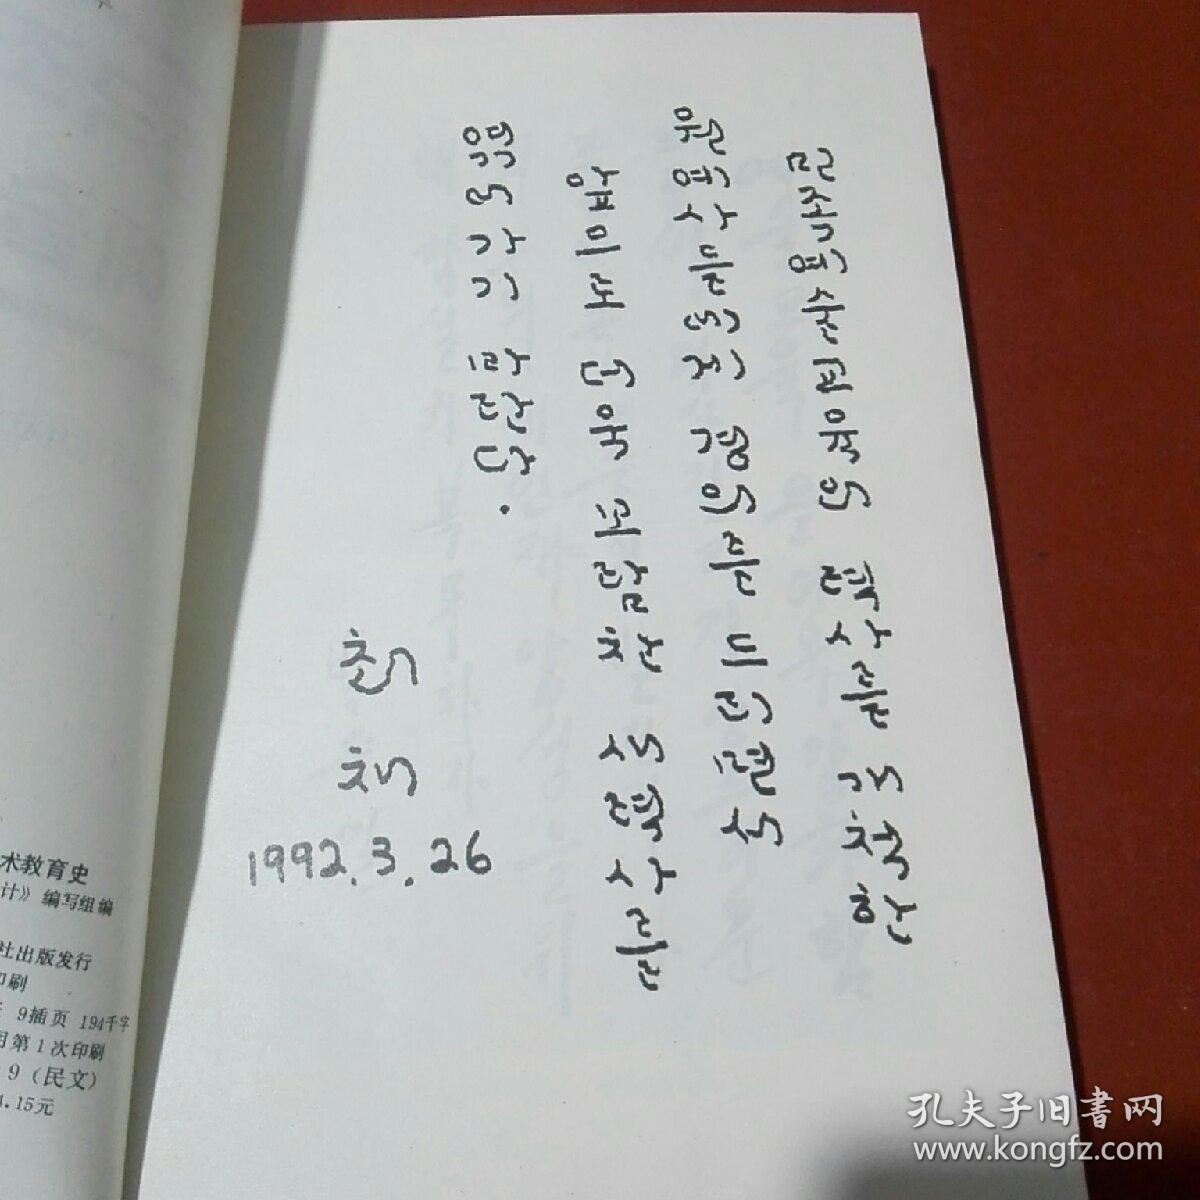 민족예술교육의 력사를 개척한
원예사들에게 경의를 드리면서
앞으로 더욱 보람찬 새력사를
엮어가기 바란다.
최 채
1992.3.26
术教育史
计》编写组编
社出版发行
印刷
9插页 194千字
月第1次印刷
9（民文）
.15元
孔夫子旧书网
www.kongfz.com